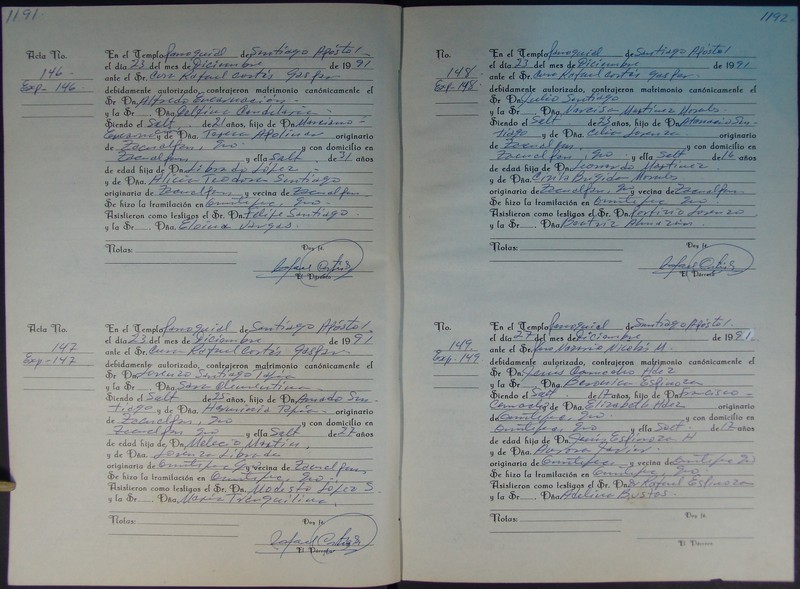 1191
Acta No.
146
Exp- 146
En el Templo Parroquial de Santiago Apóstol
el día 23 del mes de Diciembre de 1991
ante el Sr. Cura Rafael Cortés Gaspar
debidamente autorizado, contrajeron matrimonio canónicamente el
Sr. Dn. Alfredo Encarnación
y la Sr. Dña. Candelaria
Siendo el Solt de 21 años, hijo de Marciano
y de Dña. Teresa Apolinar originario
de y con domicilio en
y ella Solt. de 31 años
de edad hija de Dn. Librado López
y de Dña. Alicia Teodora Santiago
originaria de y vecina de
Se hizo la tramitación en Ometepec, Gro.
Asistieron como testigos el Sr. Dn. Felipe Santiago
y la Sr. Dña. Elvira Vargas
Notas:
Doy fe.
Rafael Cortés G
El Párroco
Acta No.
147
Exp-147
En el Templo Parroquial de Santiago Apóstol
el día 23 del mes de Diciembre de 1991
ante el Sr. Cura Rafael Cortés Gaspar
debidamente autorizado, contrajeron matrimonio canónicamente el
Sr. Dn. Lorenzo Santiago Tapia
y la Sr. Dña. Sara Clementina
Siendo el Solt de 25 años, hijo de Amado San-
tiago y de Dña. Herminia Tapia originario
de y con domicilio en
y ella Solt de 22 años
de edad hija de Dn. Melecio Martin,
y de Dña. Lorenza Librada
originaria de Ometepec y vecina de
Se hizo la tramitación en Ometepec, Gro.
Asistieron como testigos el Sr. Dn. Modesto López S.
y la Sr. Dña. María Tranquilina
Notas:
Doy fe.
Rafael Cortés G
El Párroco
1192
No.
148
Exp. 148
En el Templo Parroquial de Santiago Apóstol
el día 23 del mes de Diciembre de 1991
ante el Sr. Cura Rafael Cortés Gaspar
debidamente autorizado, contrajeron matrimonio canónicamente el
Sr. Dn. Julio Santiago
y la Sr. Dña. Narcisa Martinez Morales
Siendo el Solt de 23 años, hijo de San-
tiago y de Dña. Celia Lorenza originario
de y con domicilio en
Gro y ella Solt de 16 años
de edad hija de Dn. Leonardo Martinez
y de Dña. Brigida Morales
originaria de y vecina de
Se hizo la tramitación en Ometepec Gro.
Asistieron como testigos el Sr. Dn. Porfirio Lorenzo
y la Sr. Dña. Beatriz Almazán.
Notas:
Doy fe.
Rafael Cortés G
El Párroco
No.
149
Exp. 149
En el Templo Parroquial de Santiago Apóstol
el día 27 del mes de Diciembre de 1991
ante el Sr. Nicolás M.
debidamente autorizado, contrajeron matrimonio canónicamente el
Sr. Dn. Jesus Camacho Hdez
y la Sr. Dña. Espinoza
Siendo el Solt de 17 años, hijo de Francisco
Camacho y de Dña. Elizabeth Hdez originario
de Ometepec, Gro y con domicilio en
Ometepec, Gro y ella Solt. de 17 años
de edad hija de Dn. Espinoza H
y de Dña. Aurora
originaria de Ometepec, y vecina de Ometepec Gro
Se hizo la tramitación en Ometepec, Gro.
Asistieron como testigos el Sr. Dn. Rafael Espinoza
y la Sr. Dña. Adelina Bustos.
Notas:
Doy fe.
El Párroco